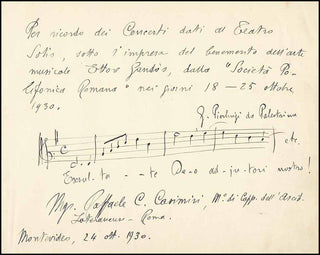 Per ricordo dei Concerti dati al Teatro
Solis, sotto l'impresa del benemerito dell'arte
musicale Ettore Gandós, dalla "Società Po-
lifonica Romana" nei giorni 18 — 25 ottobre
1930.
G. Pierluigi da Palestrina
etc.
Exsul- ta - - te De-o ad-ju-tori nostro!
Mgr. Raffaele C. Casimiri, M.° di Capp. dell'Arcib.
Lateranen - Roma.
Montevideo, 24 ott. 1930.